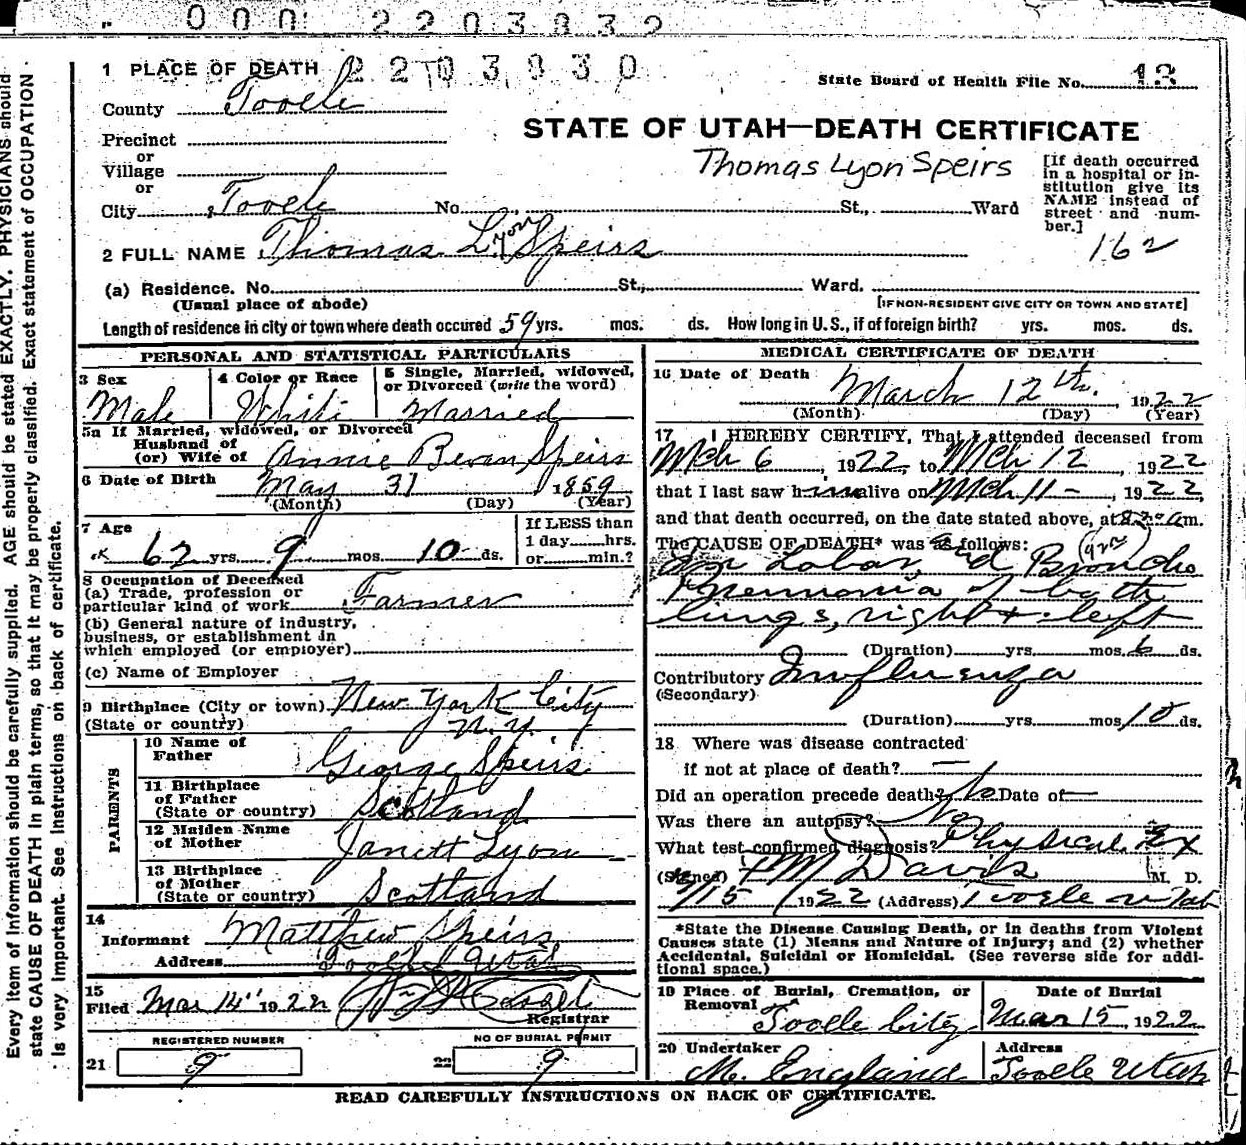 000 2203832
1 PLACE OF DEATH 2203830
State Board of Health File No. 13
County Tooele
STATE OF UTAH—DEATH CERTIFICATE
Precinct
or
Village
or
Thomas Lyon Speirs
[If death occurred in a hospital or institution give its NAME instead of street and number.]
City Tooele No. St., Ward
162
2 FULL NAME Thomas Lyon Speirs
(a) Residence. No. St., Ward.
(Usual place of abode)
[IF NON-RESIDENT GIVE CITY OR TOWN AND STATE]
Length of residence in city or town where death occured 59 yrs. mos. ds. How long in U. S., if of foreign birth? yrs. mos. ds.
PERSONAL AND STATISTICAL PARTICULARS
3 Sex
Male
4 Color or Race
White
5 Single, Married, widowed, or Divorced (write the word)
Married
5a If Married, widowed, or Divorced
Husband of
(or) Wife of Annie Bevan Speirs
6 Date of Birth May 31 1859
(Month) (Day) (Year)
7 Age
62 yrs. 9 mos. 10 ds.
If LESS than
1 day hrs.
or min.?
8 Occupation of Deceased
(a) Trade, profession or
particular kind of work Farmer
(b) General nature of industry,
business, or establishment in
which employed (or employer)
(c) Name of Employer
9 Birthplace (City or town) New York City
(State or country) N.Y.
PARENTS
10 Name of
Father George Speirs
11 Birthplace
of Father
(State or country) Scotland
12 Maiden Name
of Mother Janett Lyon
13 Birthplace
of Mother
(State or country) Scotland
14
Informant Matthew Speirs
Address Tooele Utah
15
Filed Mar 14" 1922
Registrar
REGISTERED NUMBER
21 9
NO OF BURIAL PERMIT
22 9
MEDICAL CERTIFICATE OF DEATH
16 Date of Death March 12th. 1922
(Month) (Day) (Year)
17 I HEREBY CERTIFY, That I attended deceased from
Mch 6, 1922, to Mch 12, 1922
that I last saw him alive on Mch 11 -, 1922,
and that death occurred, on the date stated above, at am.
The CAUSE OF DEATH* was as follows:
Lobar, and Broncho
Pneumonia of both
lungs, right + left
(Duration) yrs. mos. 6 ds.
Contributory Influenza
(Secondary)
(Duration) yrs. mos. 10 ds.
18 Where was disease contracted
if not at place of death? —
Did an operation precede death? No Date of —
Was there an autopsy? No
What test confirmed diagnosis? Physical Ex
(Signed) M Davis M. D.
/15 1922 (Address) Tooele Utah
*State the Disease Causing Death, or in deaths from Violent
Causes state (1) Means and Nature of Injury; and (2) whether
Accidental, Suicidal or Homicidal. (See reverse side for addi-
tional space.)
19 Place of Burial, Cremation, or
Removal Tooele City
Date of Burial
Mar 15, 1922
20 Undertaker
M. England
Address
Tooele Utah
READ CAREFULLY INSTRUCTIONS ON BACK OF CERTIFICATE.
Every item of information should be carefully supplied. AGE should be stated EXACTLY. PHYSICIANS should
state CAUSE OF DEATH in plain terms, so that it may be properly classified. Exact statement of OCCUPATION
is very important. See Instructions on back of certificate.